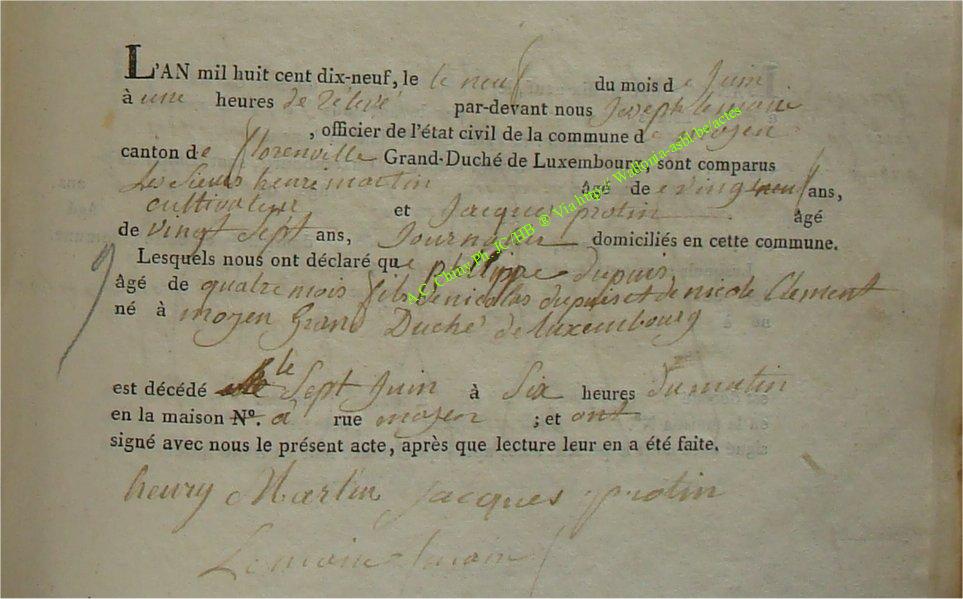 L'AN mil huit cent dix-neuf, le le neuf du mois de Juin
à une heures de relevé par-devant nous Joseph lemaire
, officier de l'état civil de la commune de moyen
canton de florenville Grand-Duché de Luxembourg, sont comparus
Les Sieurs henri martin âgé de vingt neuf ans,
cultivateur et Jacques protin âgé
de vingt Sept ans, Journalier domiciliés en cette commune.
Lesquels nous ont déclaré que philippe dupuis
âgé de quatre mois fils de nicolas dupuis et de nicole Clement
né à moyen Grand Duché de luxembourg
9
est décédé le Sept Juin à Six heures du matin
en la maison N°. a rue moyen ; et ont
signé avec nous le présent acte, après que lecture leur en a été faite.
henry Martin Jacques protin
Lemaire
A.C. Chiny Ph. JC /HB ® Via http:// Wallonia-asbl.be/actes